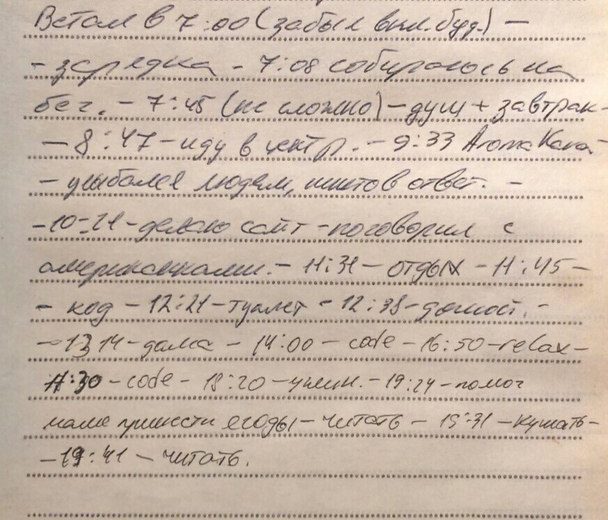 Встал в 7:00 (забыл вкл. буд.) –
– зарядка – 7:08 собираюсь на
бег. – 7:45 (не сложно) – душ + завтрак –
– 8:47 – иду в центр. – 9:33 Aroma Кава –
– улыбался людям, никто в ответ. –
– 10:21 – делаю сайт – поговорил с
американками. – 11:31 – отдых – 11:45 –
– код – 12:21 – туалет – 12:38 –
– 13 14 – дома – 14:00 – code – 16:50 – relax –
17:30 – code – 18:20 – ужин. – 19:24 – помог
маме принести ягоды – читать – 19:31 – кушать –
– 19:41 – читать.